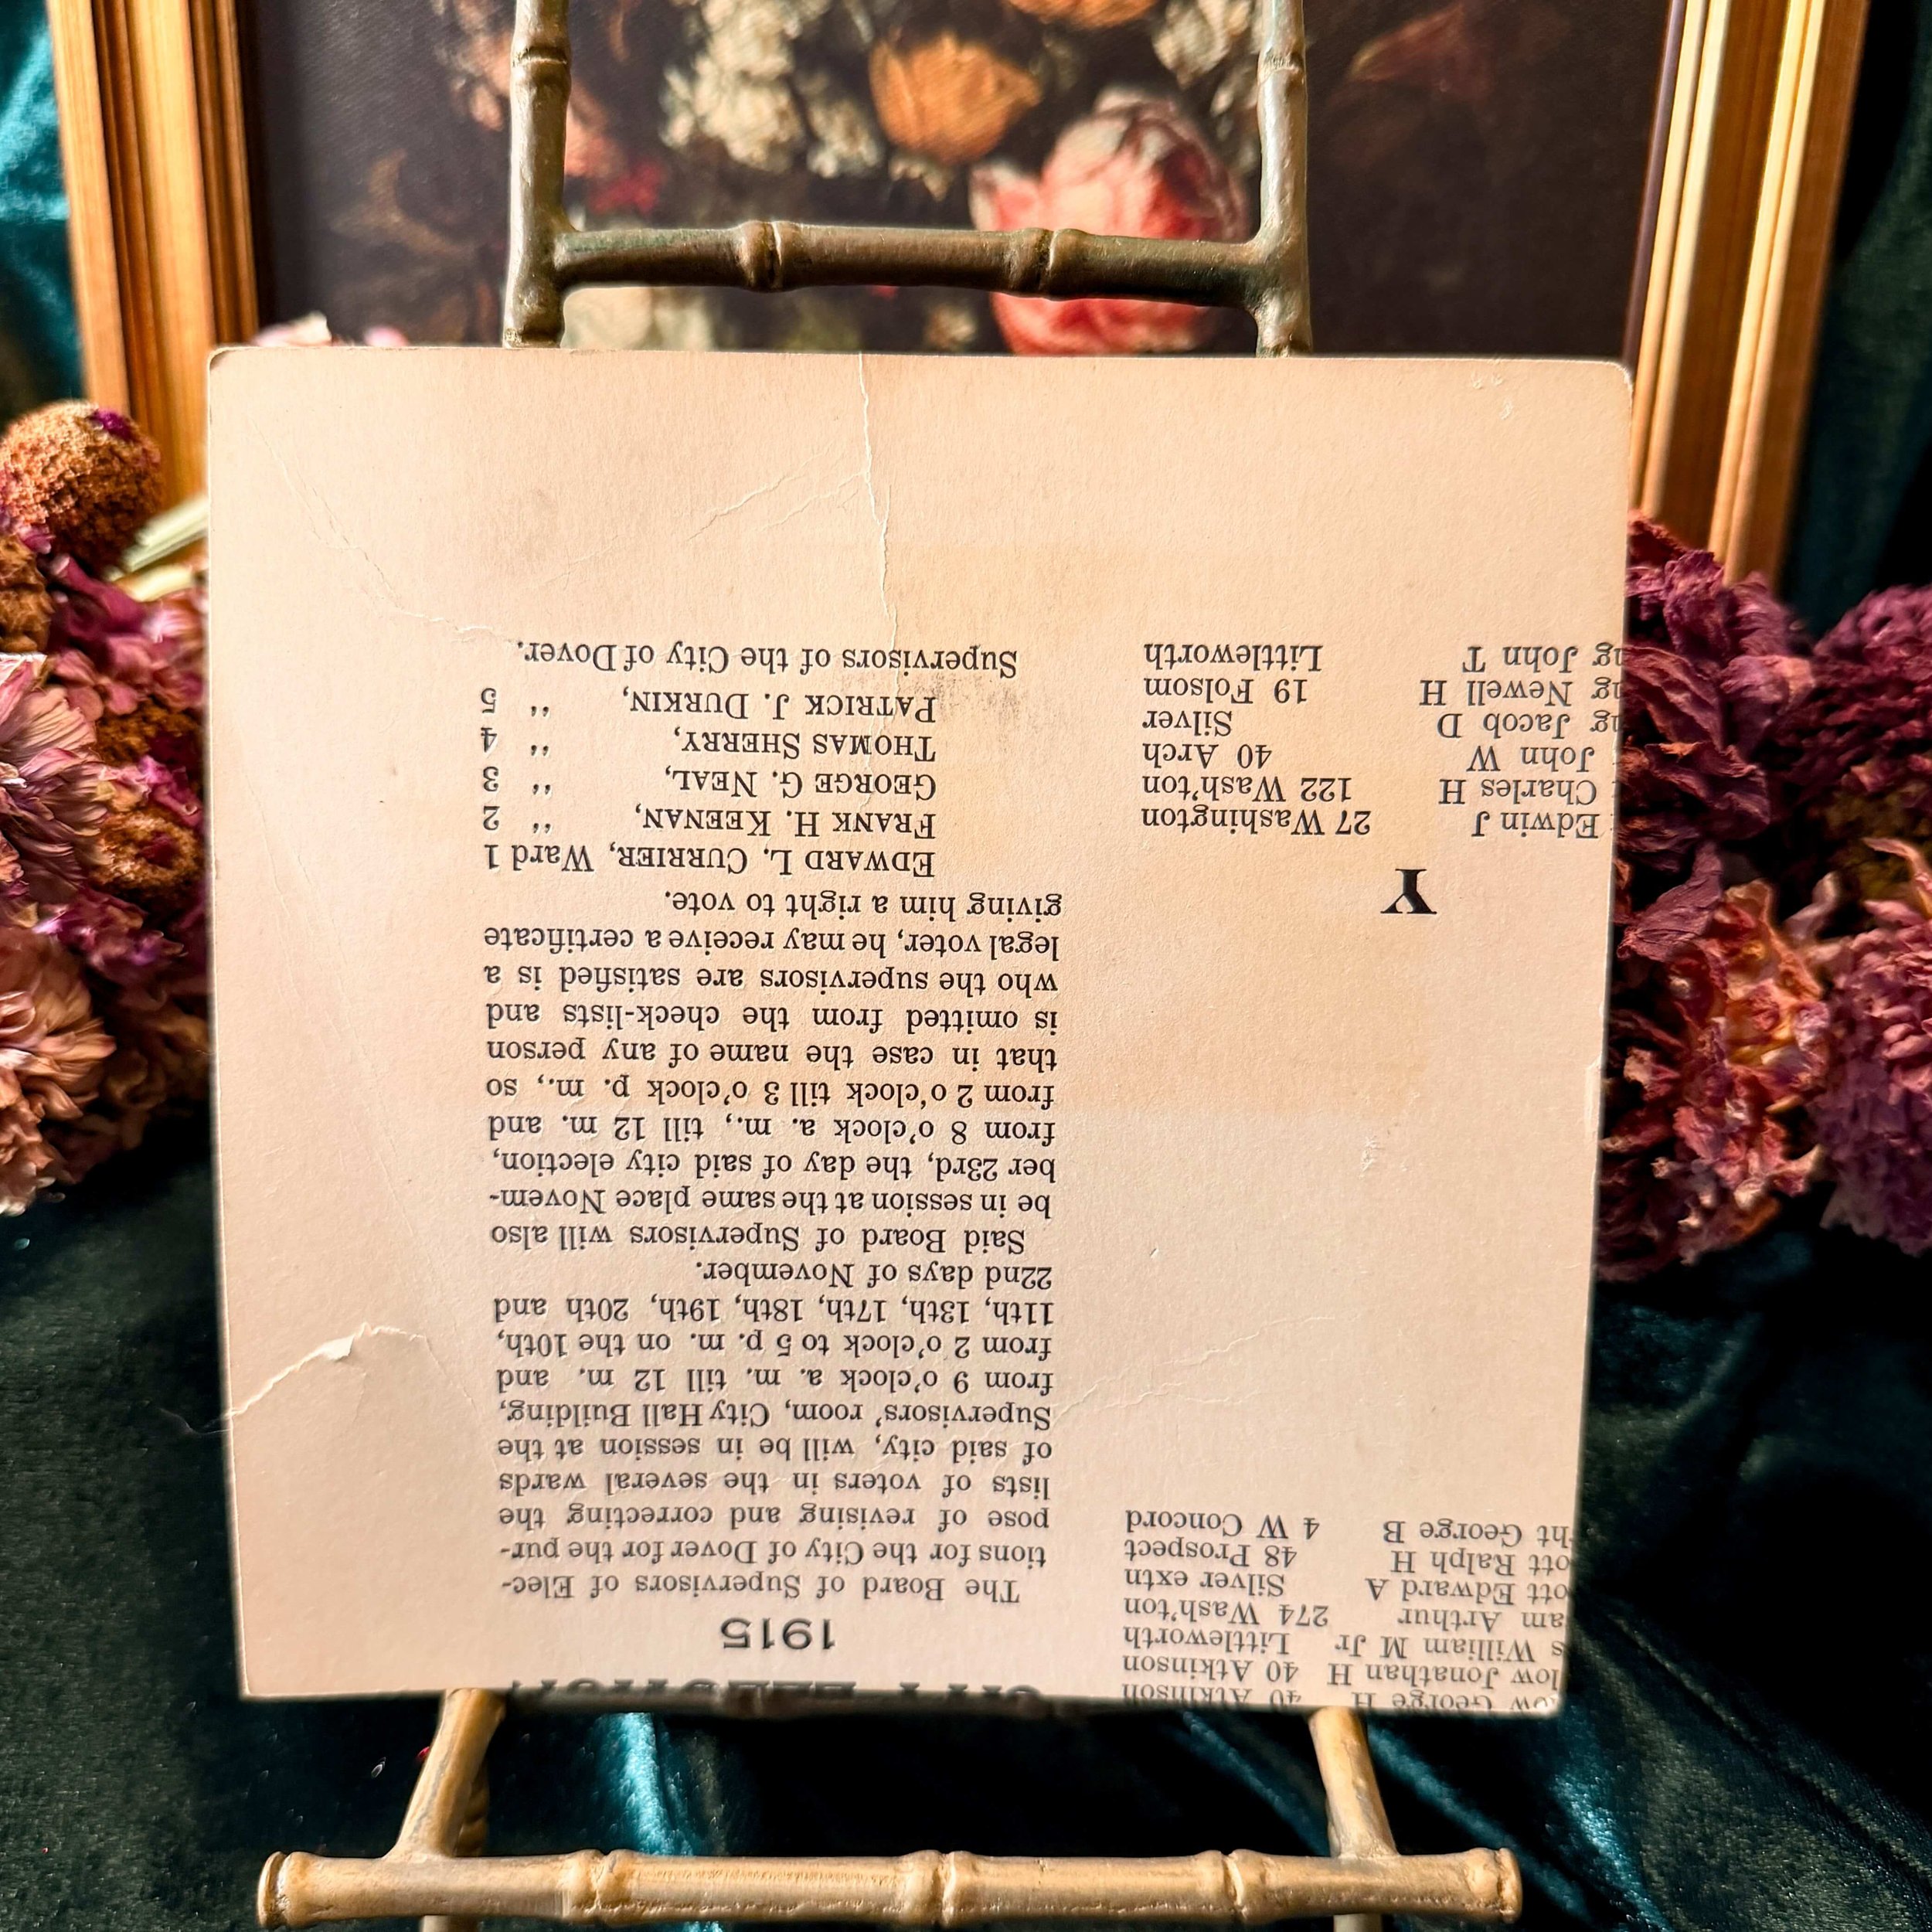 low George H 40 Atkinson
low Jonathan H 40 Atkinson
s William M Jr Littleworth
am Arthur 274 Wash'ton
ott Edward A Silver extn
ott Ralph H 48 Prospect
ht George B 4 W Concord
Y
Edwin J 27 Washington
Charles H 122 Wash'ton
John W 40 Arch
ng Jacob D Silver
ng Newell H 19 Folsom
ng John T Littleworth
1915
The Board of Supervisors of Elec-
tions for the City of Dover for the pur-
pose of revising and correcting the
lists of voters in the several wards
of said city, will be in session at the
Supervisors' room, City Hall Building,
from 9 o'clock a. m. till 12 m. and
from 2 o'clock to 5 p. m. on the 10th,
11th, 13th, 17th, 18th, 19th, 20th and
22nd days of November.
Said Board of Supervisors will also
be in session at the same place Novem-
ber 23rd, the day of said city election,
from 8 o'clock a. m., till 12 m. and
from 2 o'clock till 3 o'clock p. m., so
that in case the name of any person
is omitted from the check-lists and
who the supervisors are satisfied is a
legal voter, he may receive a certificate
giving him a right to vote.
EDWARD L. CURRIER, Ward 1
FRANK H. KEENAN, " 2
GEORGE G. NEAL, " 3
THOMAS SHERRY, " 4
PATRICK J. DURKIN, " 5
Supervisors of the City of Dover.